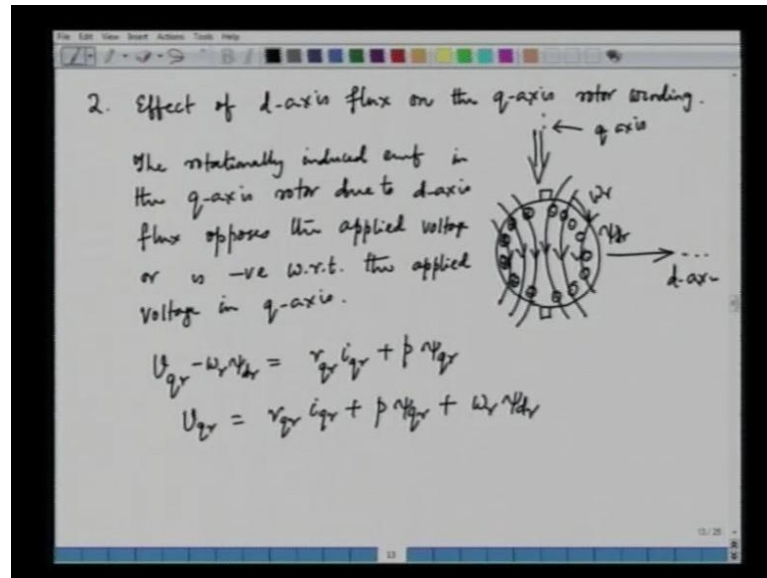 File Edit View Insert Actions Tools Help
2. Effect of d-axis flux on the q-axis rotor winding.
q axis
The rotationally induced emf in
the q-axis rotor due to d-axis
flux opposes the applied voltage
or is -ve w.r.t. the applied
voltage in q-axis.
ωr
ψdr
d-axis
υqr - ωr ψdr = rqr iqr + p ψqr
υqr = rqr iqr + p ψqr + ωr ψdr
13/25
13